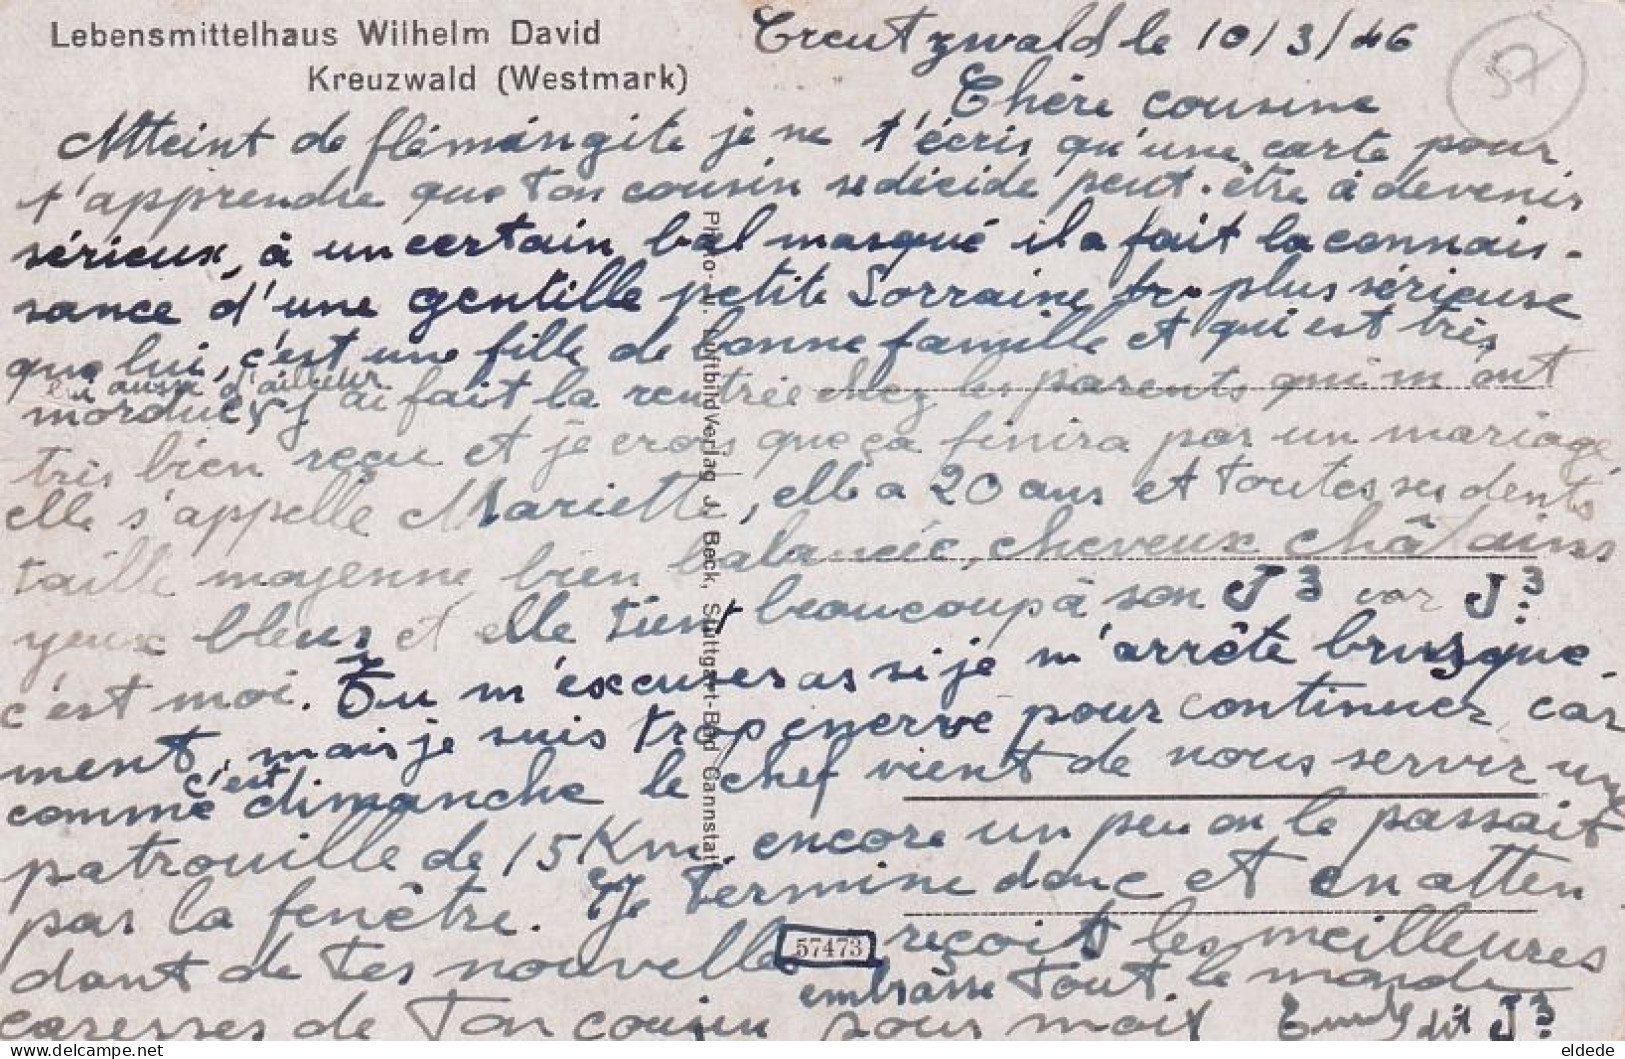 Lebensmittelhaus Wilhelm David
Kreuzwald (Westmark)
Creutzwald le 10/3/46
57
Chère cousine
Atteint de flémingite je ne t'écris qu'une carte pour
t'apprendre que ton cousin se décide peut-être à devenir
sérieux, à un certain bal masqué il a fait la connais-
sance d'une gentille petite Lorraine plus sérieuse
que lui, c'est une fille de bonne famille et qui est très
lui aussi d'ailleur
mordue, j'ai fait la rentrée chez les parents qui m'ont
très bien reçu et je crois que ça finira par un mariage
elle s'appelle Mariette, elle a 20 ans et toutes ses dents
taille moyenne bien balancée, cheveux châtains
yeux bleus et elle tient beaucoup à son J3 car J3
c'est moi. Tu m'excuseras si je m'arrête brusque-
ment, mais je suis trop enervé pour continuer car
comme c'est dimanche le chef vient de nous servir une
patrouille de 15 Km. encore un peu on le passait
par la fenêtre. Je termine donc et en atten
dant de tes nouvelles reçoit les meilleures
caresses de ton cousin
embrasse tout le monde
pour moi dit J3
Luftbild Verlag J. Beck, Stuttgart-Bad Cannstatt
57473
eldede